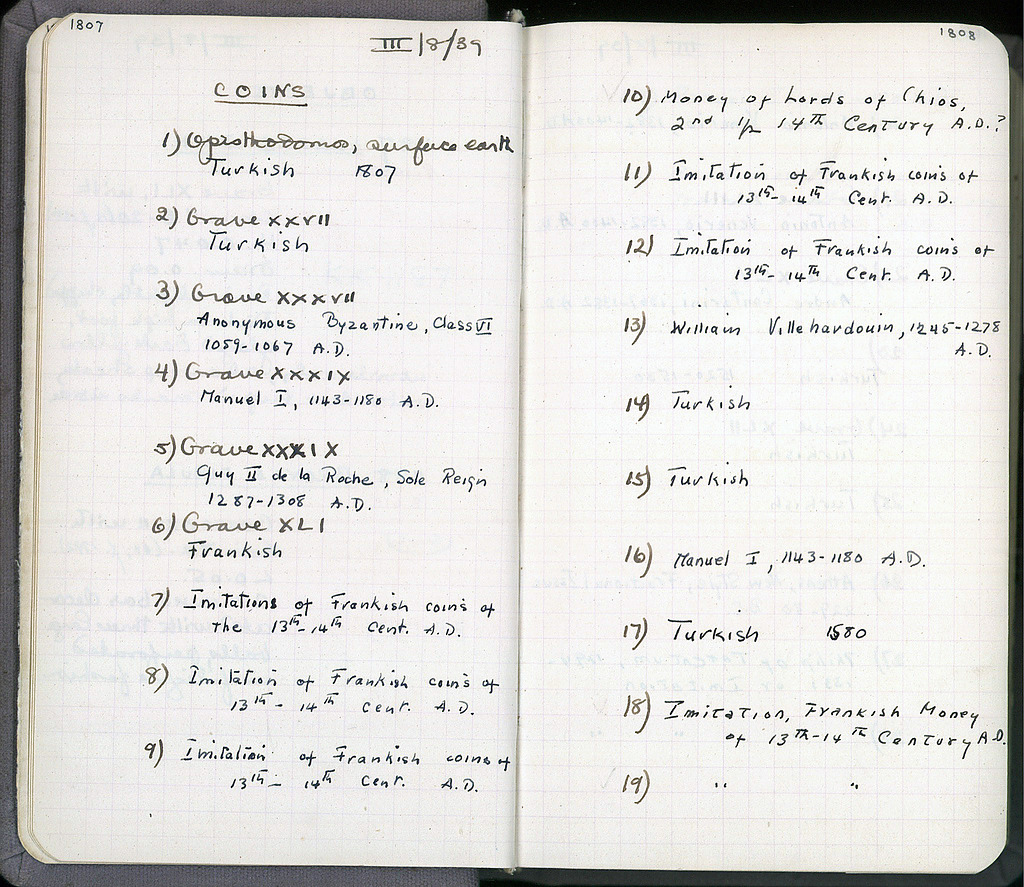 1807
III/8/39
COINS
1) Opisthodomos, surface earth
Turkish 1807
2) Grave XXVII
Turkish
3) Grave XXXVII
Anonymous Byzantine, Class VI
1059-1067 A.D.
4) Grave XXXIX
Manuel I, 1143-1180 A.D.
5) Grave XXXIX
Guy II de la Roche, Sole Reign
1287-1308 A.D.
6) Grave XLI
Frankish
7) Imitations of Frankish coins of
the 13th-14th Cent. A.D.
8) Imitation of Frankish coins of
13th-14th Cent. A.D.
9) Imitation of Frankish coins of
13th-14th Cent. A.D.
1808
10) Money of Lords of Chios,
2nd 1/2 14th Century A.D.?
11) Imitation of Frankish coins of
13th-14th Cent. A.D.
12) Imitation of Frankish coins of
13th-14th Cent. A.D.
13) William Villehardouin, 1245-1278
A.D.
14) Turkish
15) Turkish
16) Manuel I, 1143-1180 A.D.
17) Turkish 1580
18) Imitation, Frankish Money
of 13th-14th Century A.D.
19) " "